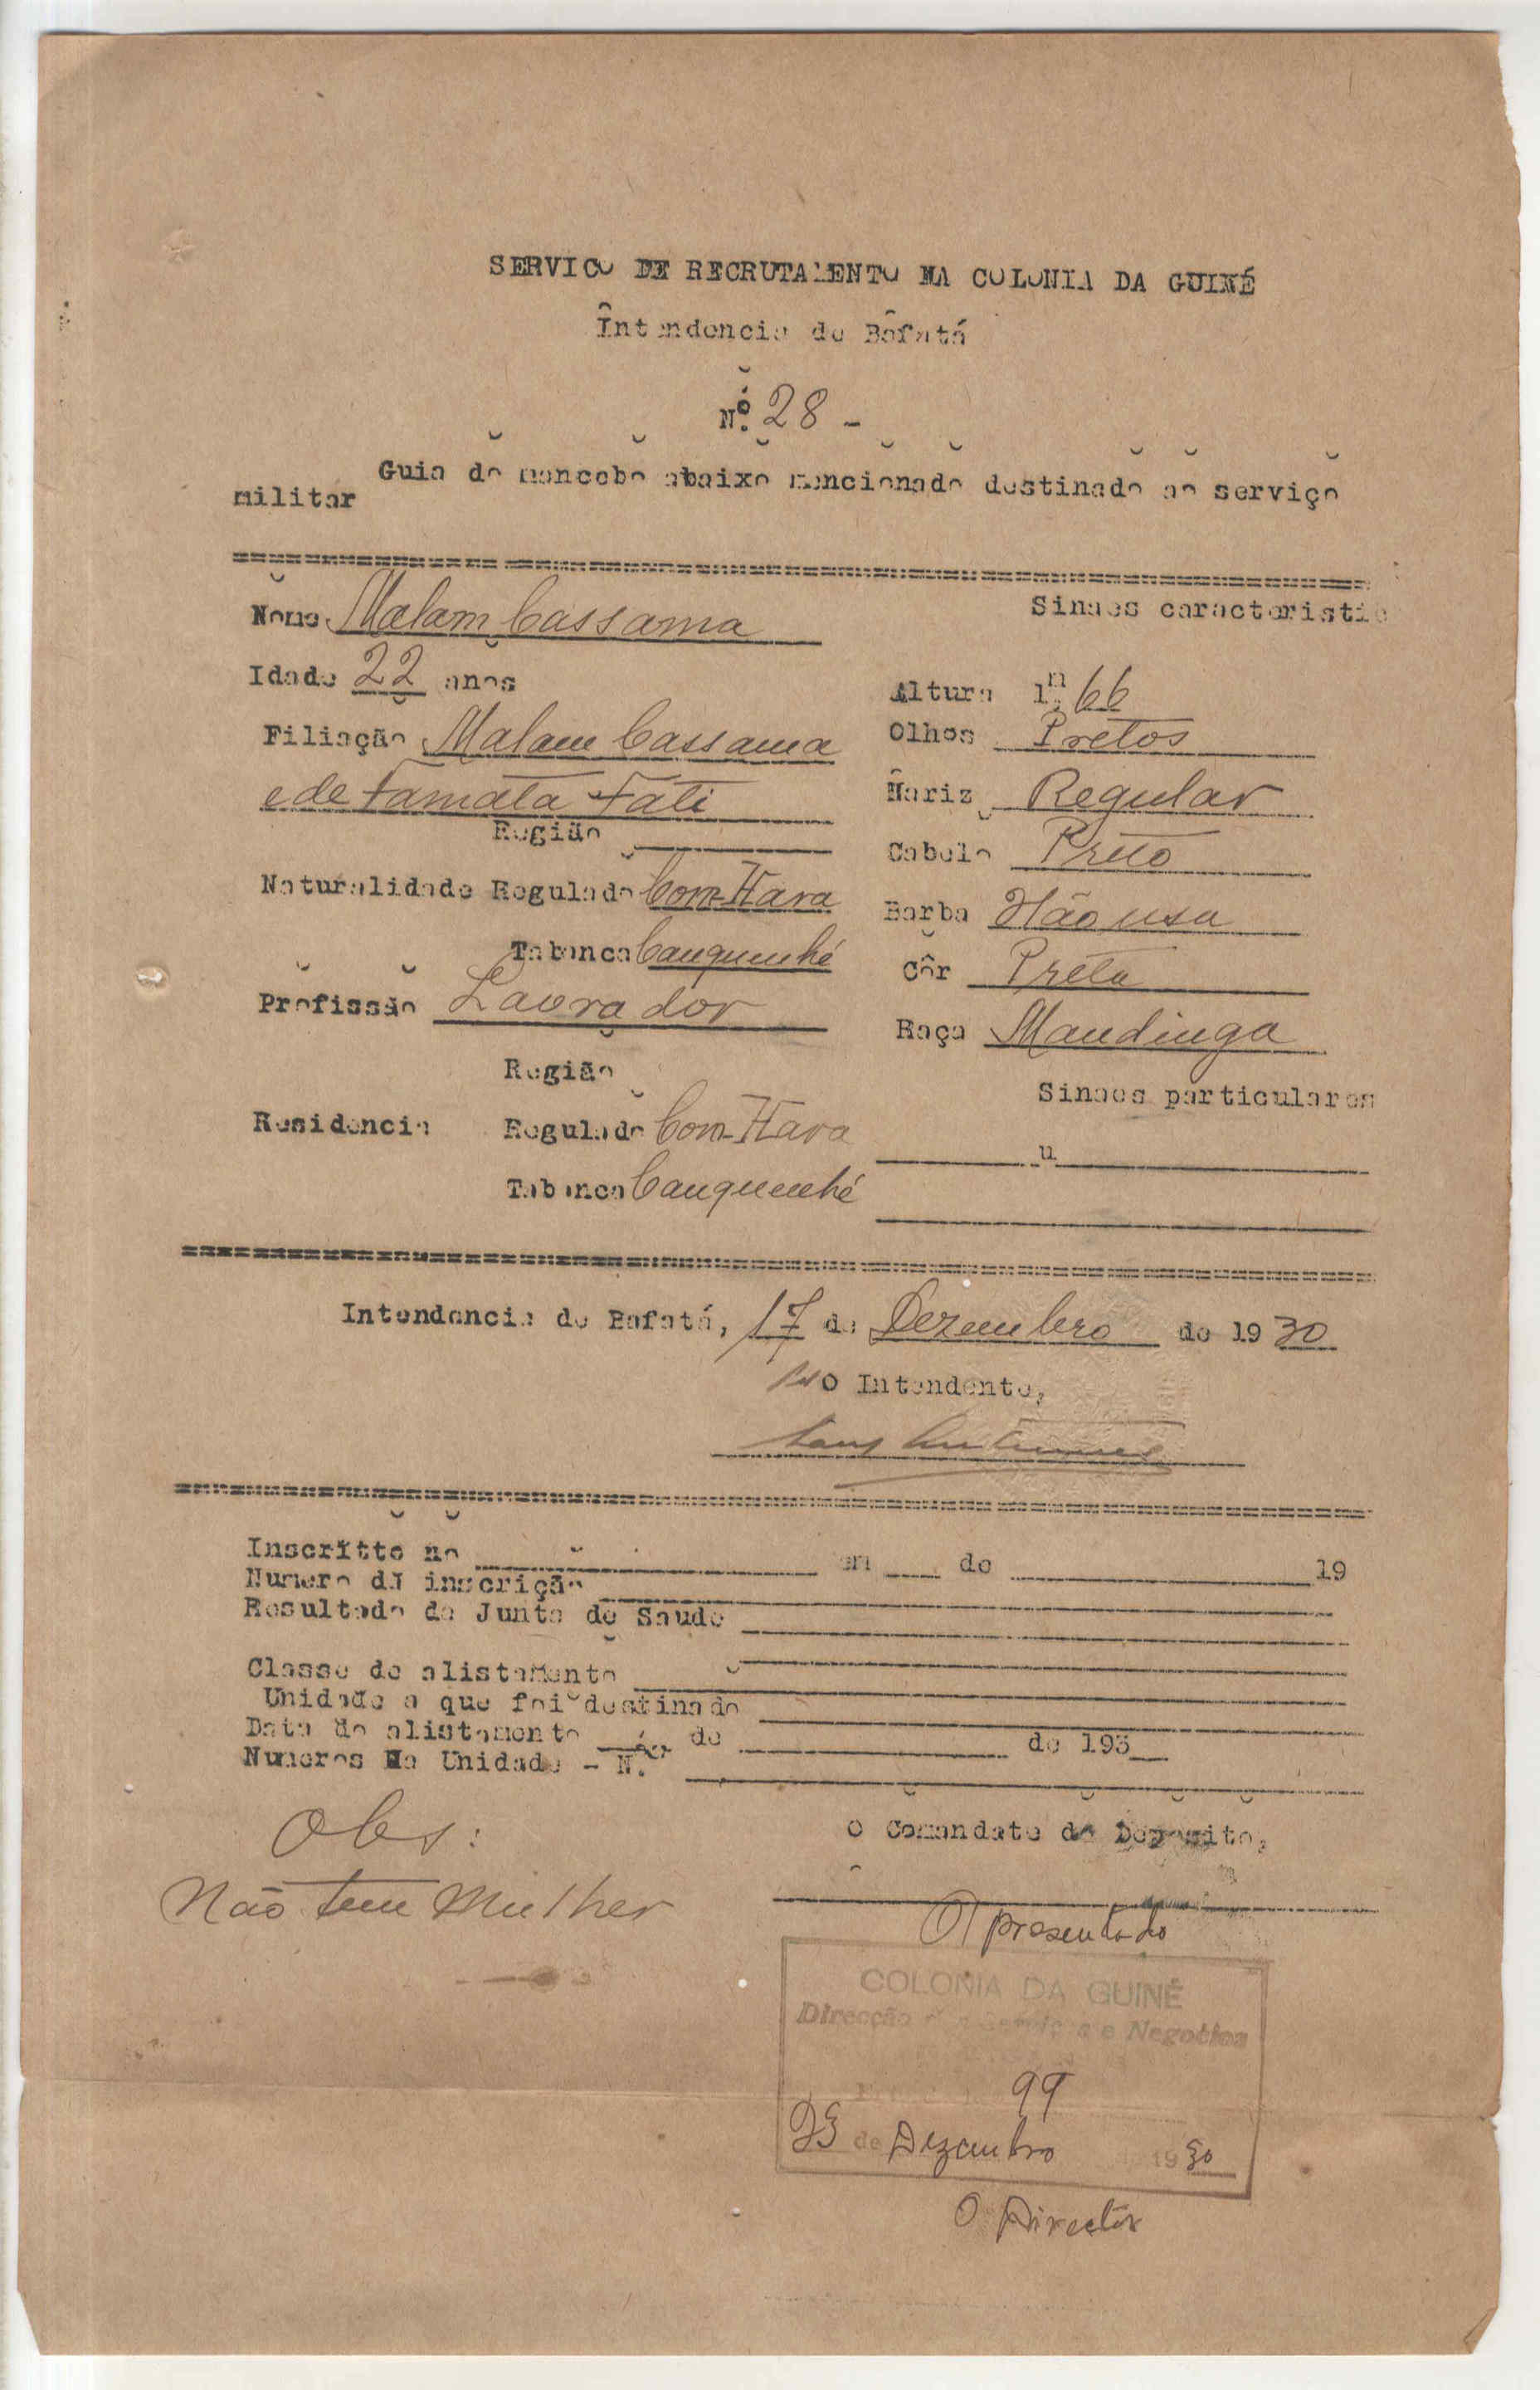 SERVICO DE RECRUTAMENTO NA COLONIA DA GUINÉ
Intendencia de Bafatá
Nº. 28 -
Guia do mancebo abaixo mencionado destinado ao serviço
militar
Nome Malam Cassama
Sinaes caracteristic
Idade 22 anos
Altura 1m,66
Filiação Malam Cassama
Olhos Pretos
e de Famata Fati
Nariz Regular
Região
Cabelo Preto
Naturalidade Regulado Com-Hara
Barba Não usa
Tabanca Canquenhé
Côr Preta
Profissão Lavrador
Raça Mandinga
Região
Sinaes particulares
Residencia Regulado Com-Hara
"
Tabanca Canquenhé
Intendencia de Bafatá, 17 de Dezembro de 1930
O Intendente,
Inscritto no em de 19
Numero da inscrição
Resultado da Junta de Saude
Classe de alistamento
Unidade a que foi destinado
Data do alistamento de de 193
Numeros Na Unidade - N.
Obs:
O Comandate do Deposito,
Não tem Mulher
Apresentado
COLONIA DA GUINÉ
Direcção e Negocios
99
23 de Dezembro 1930
O Director